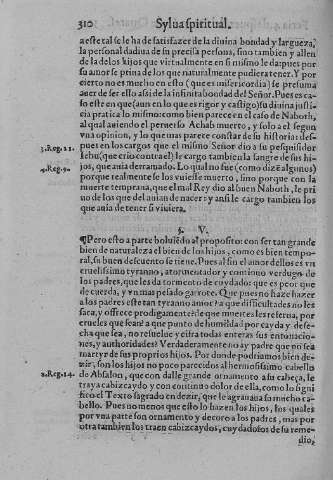 310 Sylua spiritual.
a este tal se le ha de satisfazer de la diuina bondad y largueza,
la personal dadiua de su precisa persona, sino tambien y allen
de la de los hijos que virtualmente en si mismo le da: pues por
su amor se priua de los que naturalmente pudiera tener. Y por
cierto no es mucho en esto (que es misericordia) se presuma
auer de ser ello assi de la infinita bondad del Señor. Pues es ca-
so este en que (aun en lo que es rigor y castigo) su diuina justi-
cia pratica lo mismo: como bien parece en el caso de Naboth,
al qual auiendo el peruerso Achab muerto, y solo a el segun
vna opinion, y lo que mas parece constar de su historia: des-
3. Reg. 21. pues en los cargos que el mismo Señor dio a su pesquisidor
Iehu (que erio contra el) le cargo tambien la sangre de sus hi-
4. Reg. 9. jos, que auia derramado. Lo qual no fue (como dize algunos)
porque realmente se los vuiesse muerto, sino porque con la
muerte temprana, que el mal Rey dio al buen Naboth, le pri
uo de los que del auian de nacer: y assi le cargo tambien los
que auia de tener si viuiera.
§. V.
¶Pero esto a parte boluiēdo al proposito: con ser tan grande
bien de naturaleza el bien de los hijos, como es bien tempo-
ral, su buen descuento se tiene. Pues al fin el amor dellos es vn
cruelissimo tyranno, atormentador y continuo verdugo de
los padres, que les da tormento de cuydado: que es peor que
de cuerda, y vn mas pesado garrote. Que pues no haze hazer
a los padres este tan tyranno amor? a que dificultades no les
saca, y ofrece prodigamente? de que muertes les referna, por
crueles que sean? a que punto de humildad por cayda y dese-
cha que sea, no resuelue y cifra todas enteras sus entonacio-
nes, y authoridades? Verdaderamente no ay padre que no sea
martyr de sus proprios hijos. Por donde podriamos bien de-
zir, son los hijos no poco parecidos al hermosissimo cabello
2. Reg. 14. de Absalon, que con dalle grande ornamento a su cabeça, le
traya cabizcaydo y con continuo dolor de ella, como lo signi
fico el Texto sagrado en dezir, que le agrauaua su mucho ca-
bello. Pues no menos que esto lo hazen los hijos, los quales
por vna parte son ornamento y decoro a los padres, mas por
otra tambien los traen cabizcaydos, cuydadosos de su reme-
dio,